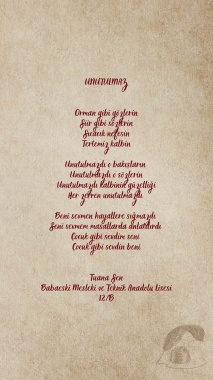 UNUTULMAZ
Orman gibi gözlerin
Şiir gibi sözlerin
Sıcacık nefesin
Tertemiz kalbin
Unutulmazdı o bakışların
Unutulmazdı o sözlerin
Unutulmazdı kalbinin güzelliği
Her zerren unutulmazdı
Beni sevmen hayallere sığmazdı
Seni sevmem masallarda anlatılırdı
Çocuk gibi sevdim seni
Çocuk gibi sevdin beni
Tuana Şen
Babaeski Mesleki ve Teknik Anadolu Lisesi
12/B